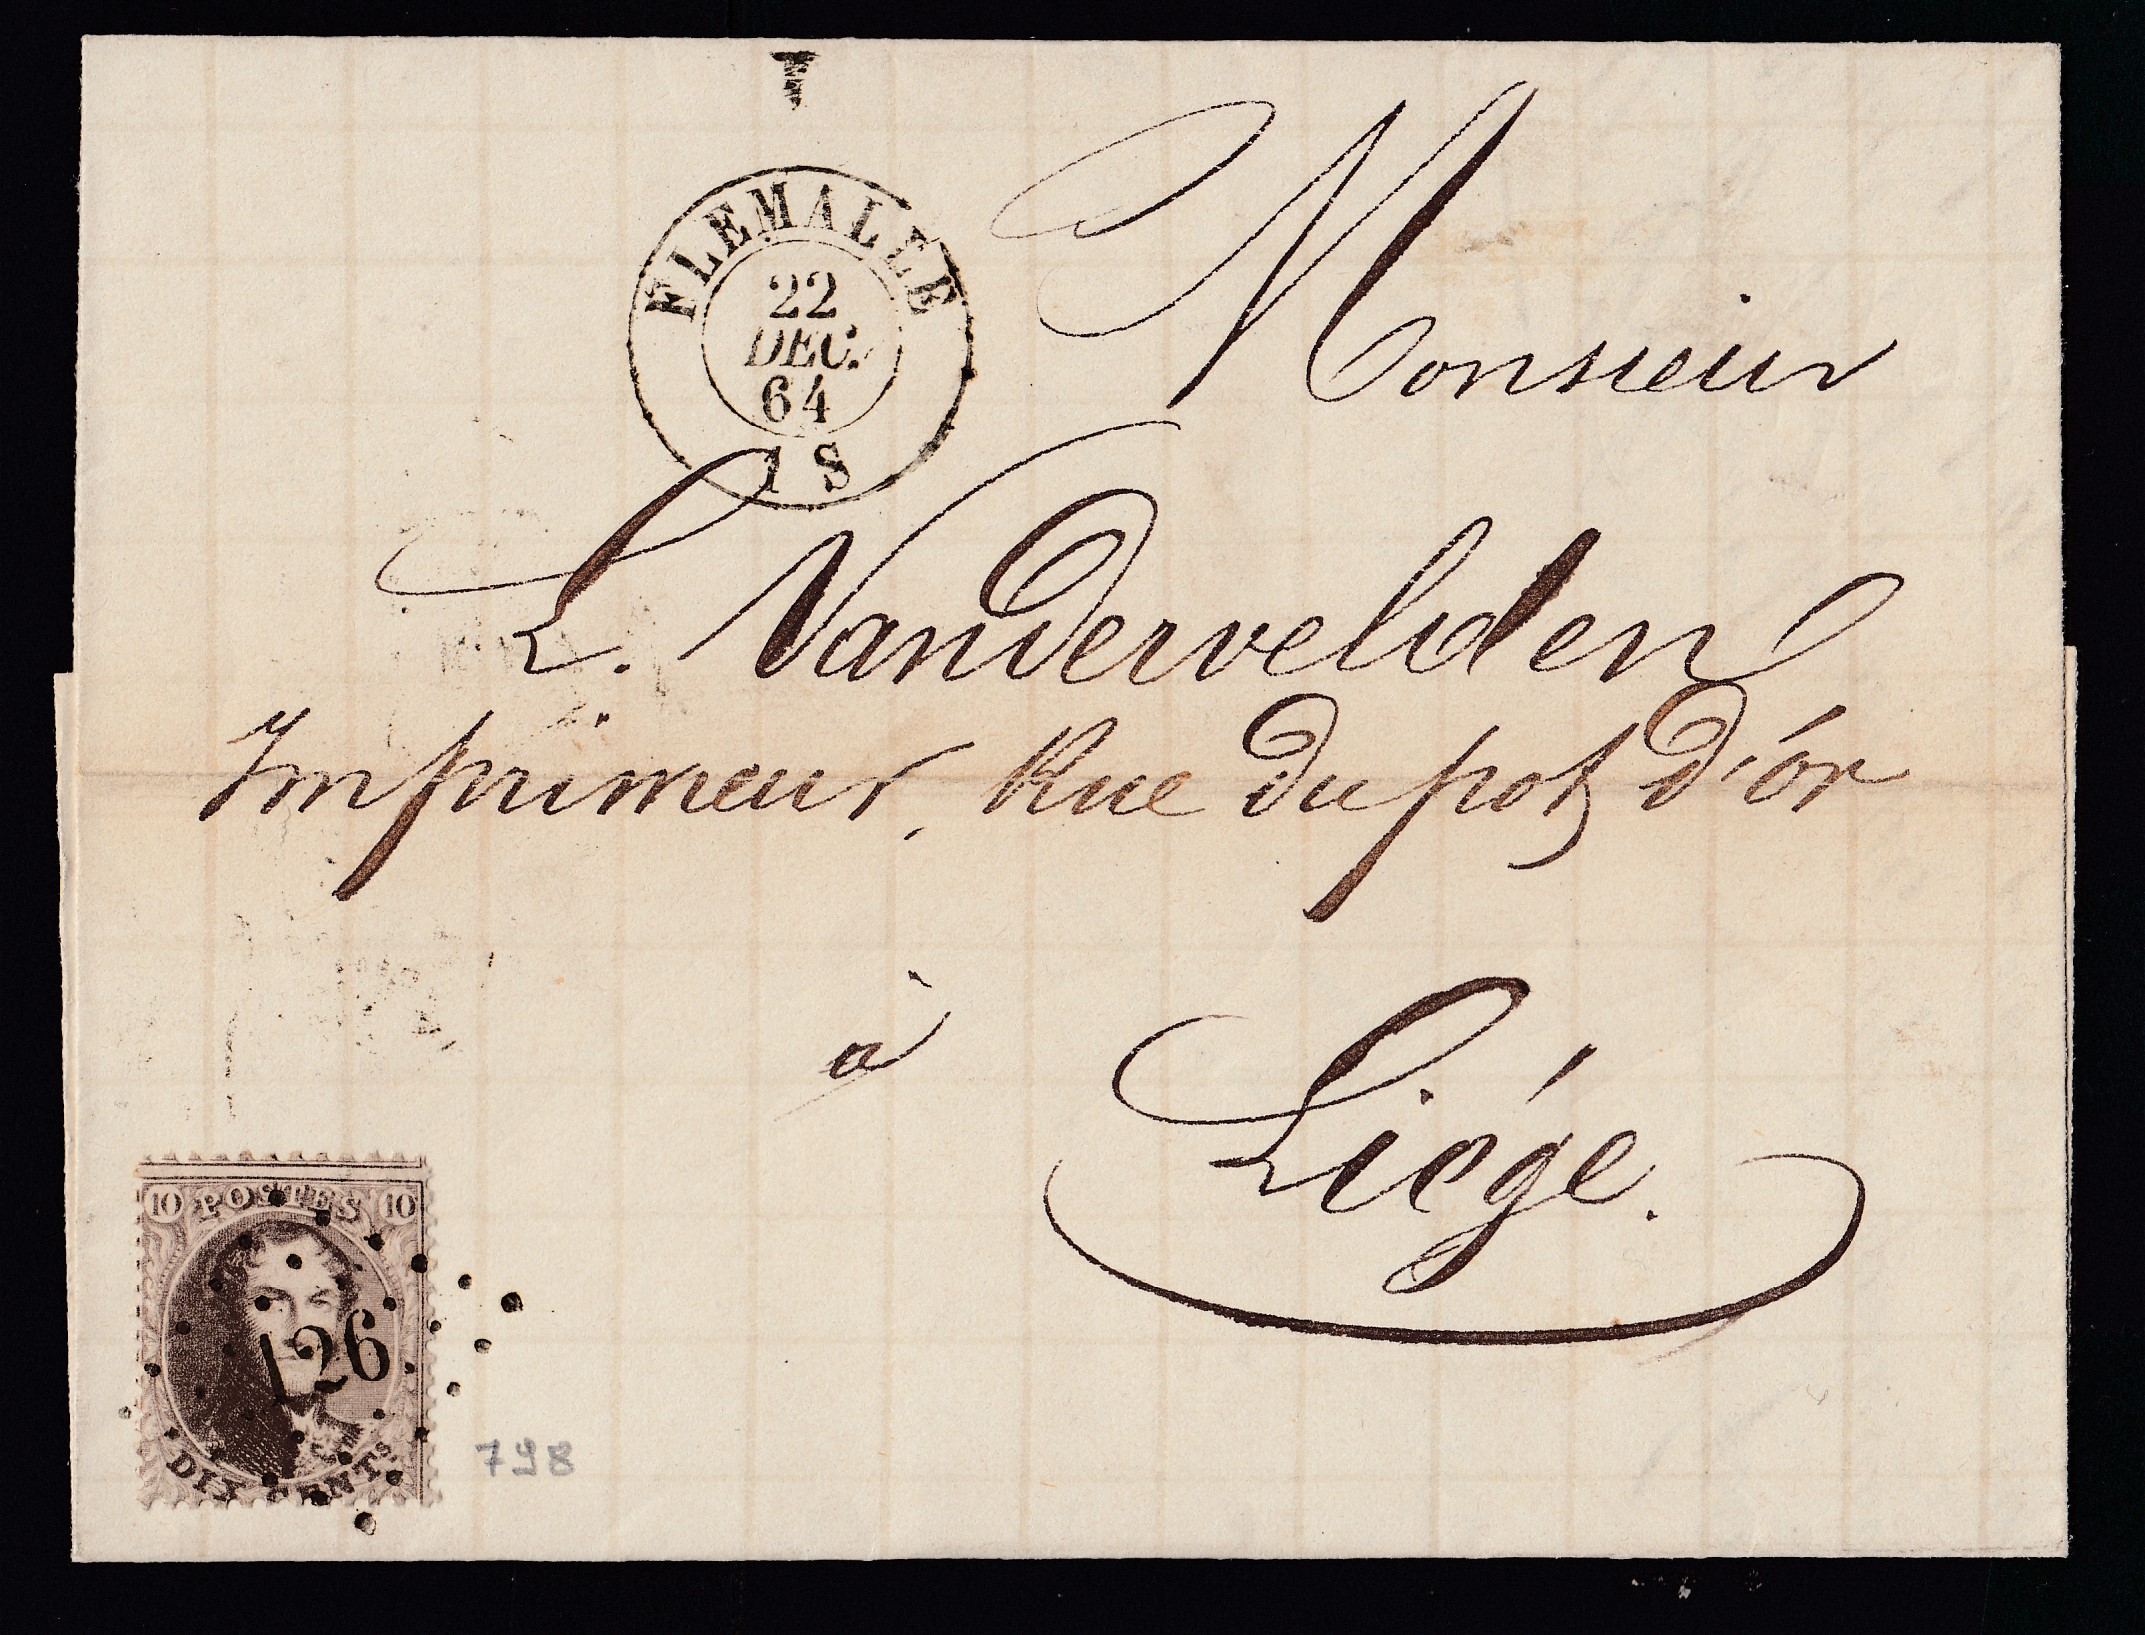 FLEMALLE
22
DEC.
64
1 S
Monsieur
L. Vandervelden
Imprimeur, Rue du pot d'or
à
Liége.
10 POSTES 10
126
DIX CENTS
798